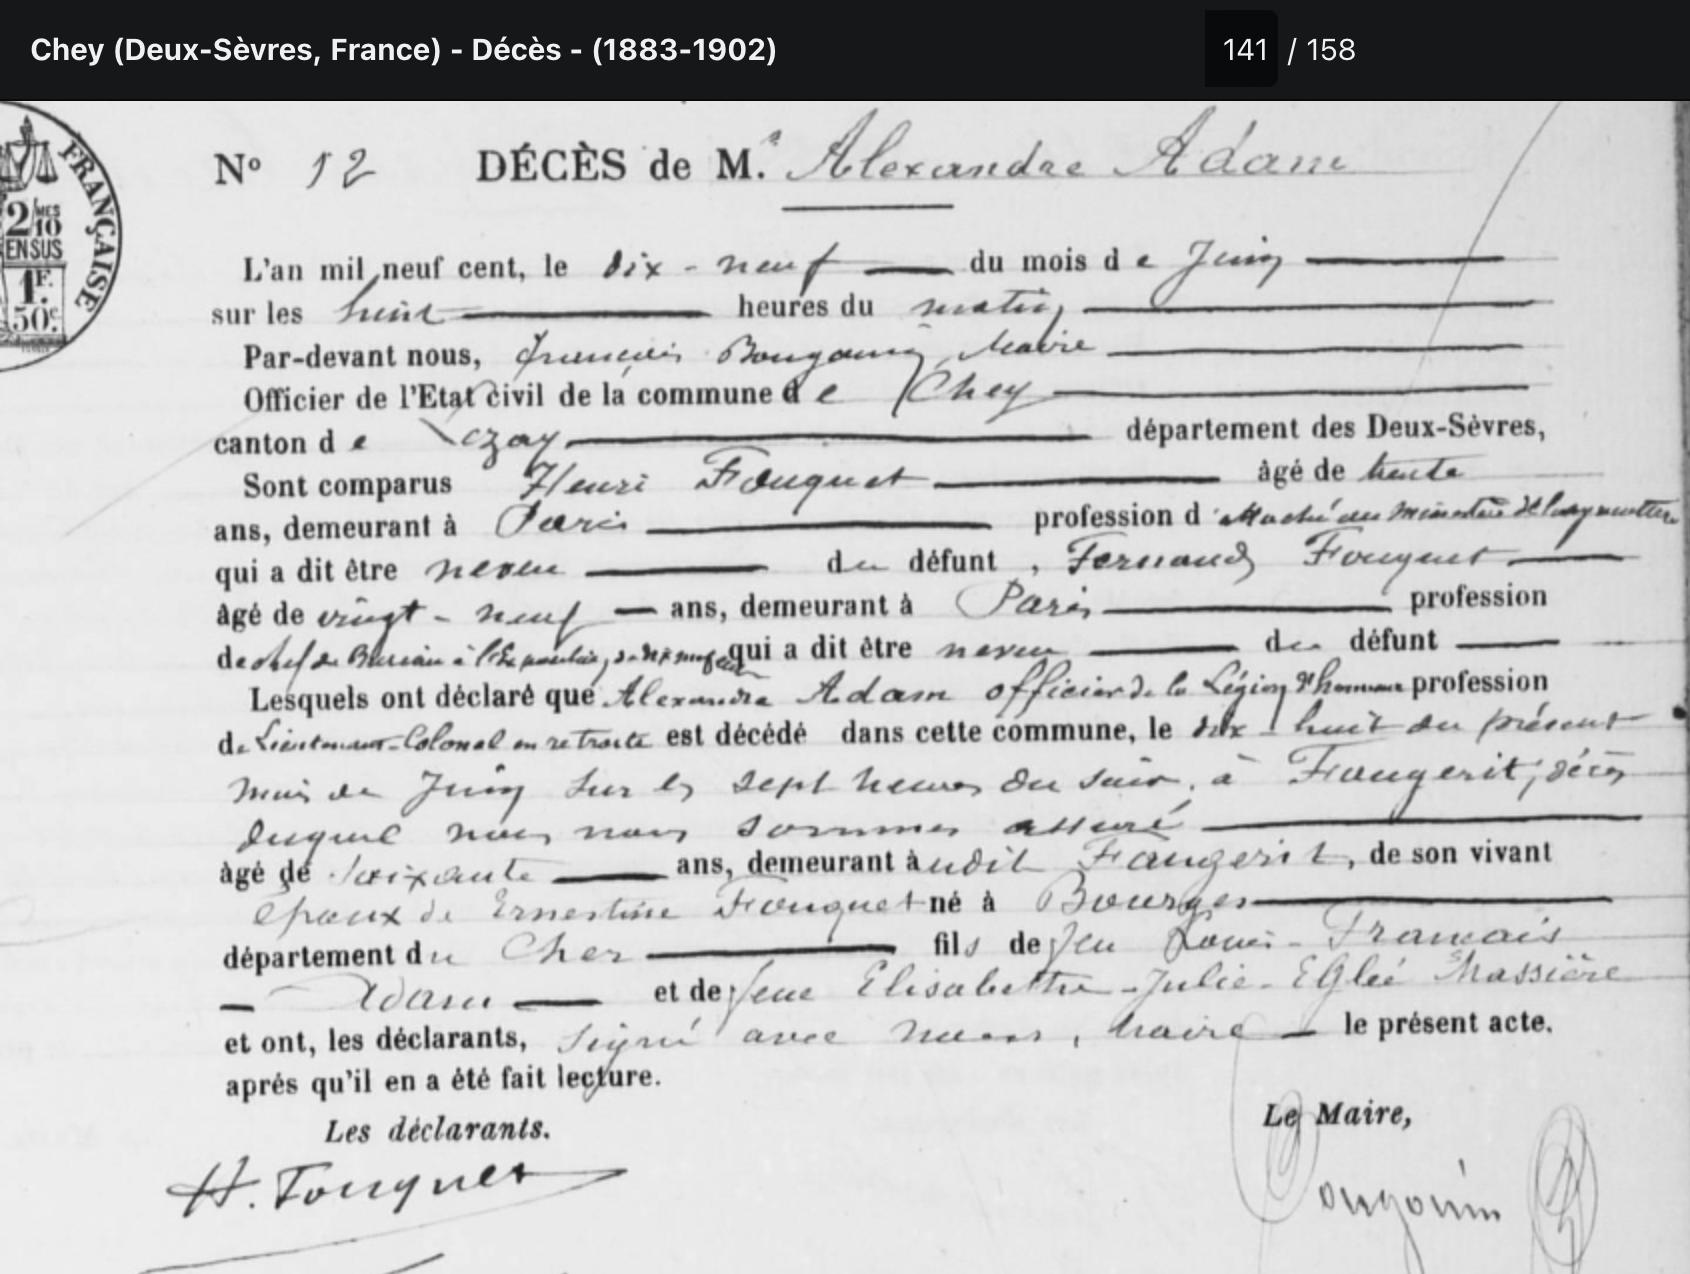 Chey (Deux-Sèvres, France) - Décès - (1883-1902)
141 / 158
FRANÇAISE
2/10 MES
EN SUS
1F.
50c.
No 12 DÉCÈS de M.r Alexandre Adam
L'an mil neuf cent, le dix-neuf du mois de Juin
sur les huit heures du matin,
Par-devant nous, François Bougouin, Maire
Officier de l'Etat civil de la commune de Chey
canton de Lezay département des Deux-Sèvres,
Sont comparus Henri Fouquet âgé de trente
ans, demeurant à Paris profession d'attaché au ministère de l'agriculture
qui a dit être neveu du défunt, Fernand Fouquet
âgé de vingt-neuf ans, demeurant à Paris, profession
de chef de Bureau à l'Exposition, qui a dit être neveu du défunt
Lesquels ont déclaré que Alexandre Adam officier de la Légion d'honneur profession
de Lieutenant-Colonel en retraite est décédé dans cette commune, le dix-huit du présent
mois de Juin sur les sept heures du soir, à Fougerit, décès
duquel nous nous sommes assuré
âgé de soixante ans, demeurant audit Fougerit, de son vivant
époux de Ernestine Fouquet né à Bourges
département du Cher fils de feu Louis-François
Adam et de feue Elisabethe-Julie-Eglée Massière
et ont, les déclarants, signé avec nous, maire le présent acte.
aprés qu'il en a été fait lecture.
Les déclarants. Le Maire,
H. Fouquet Bougouin